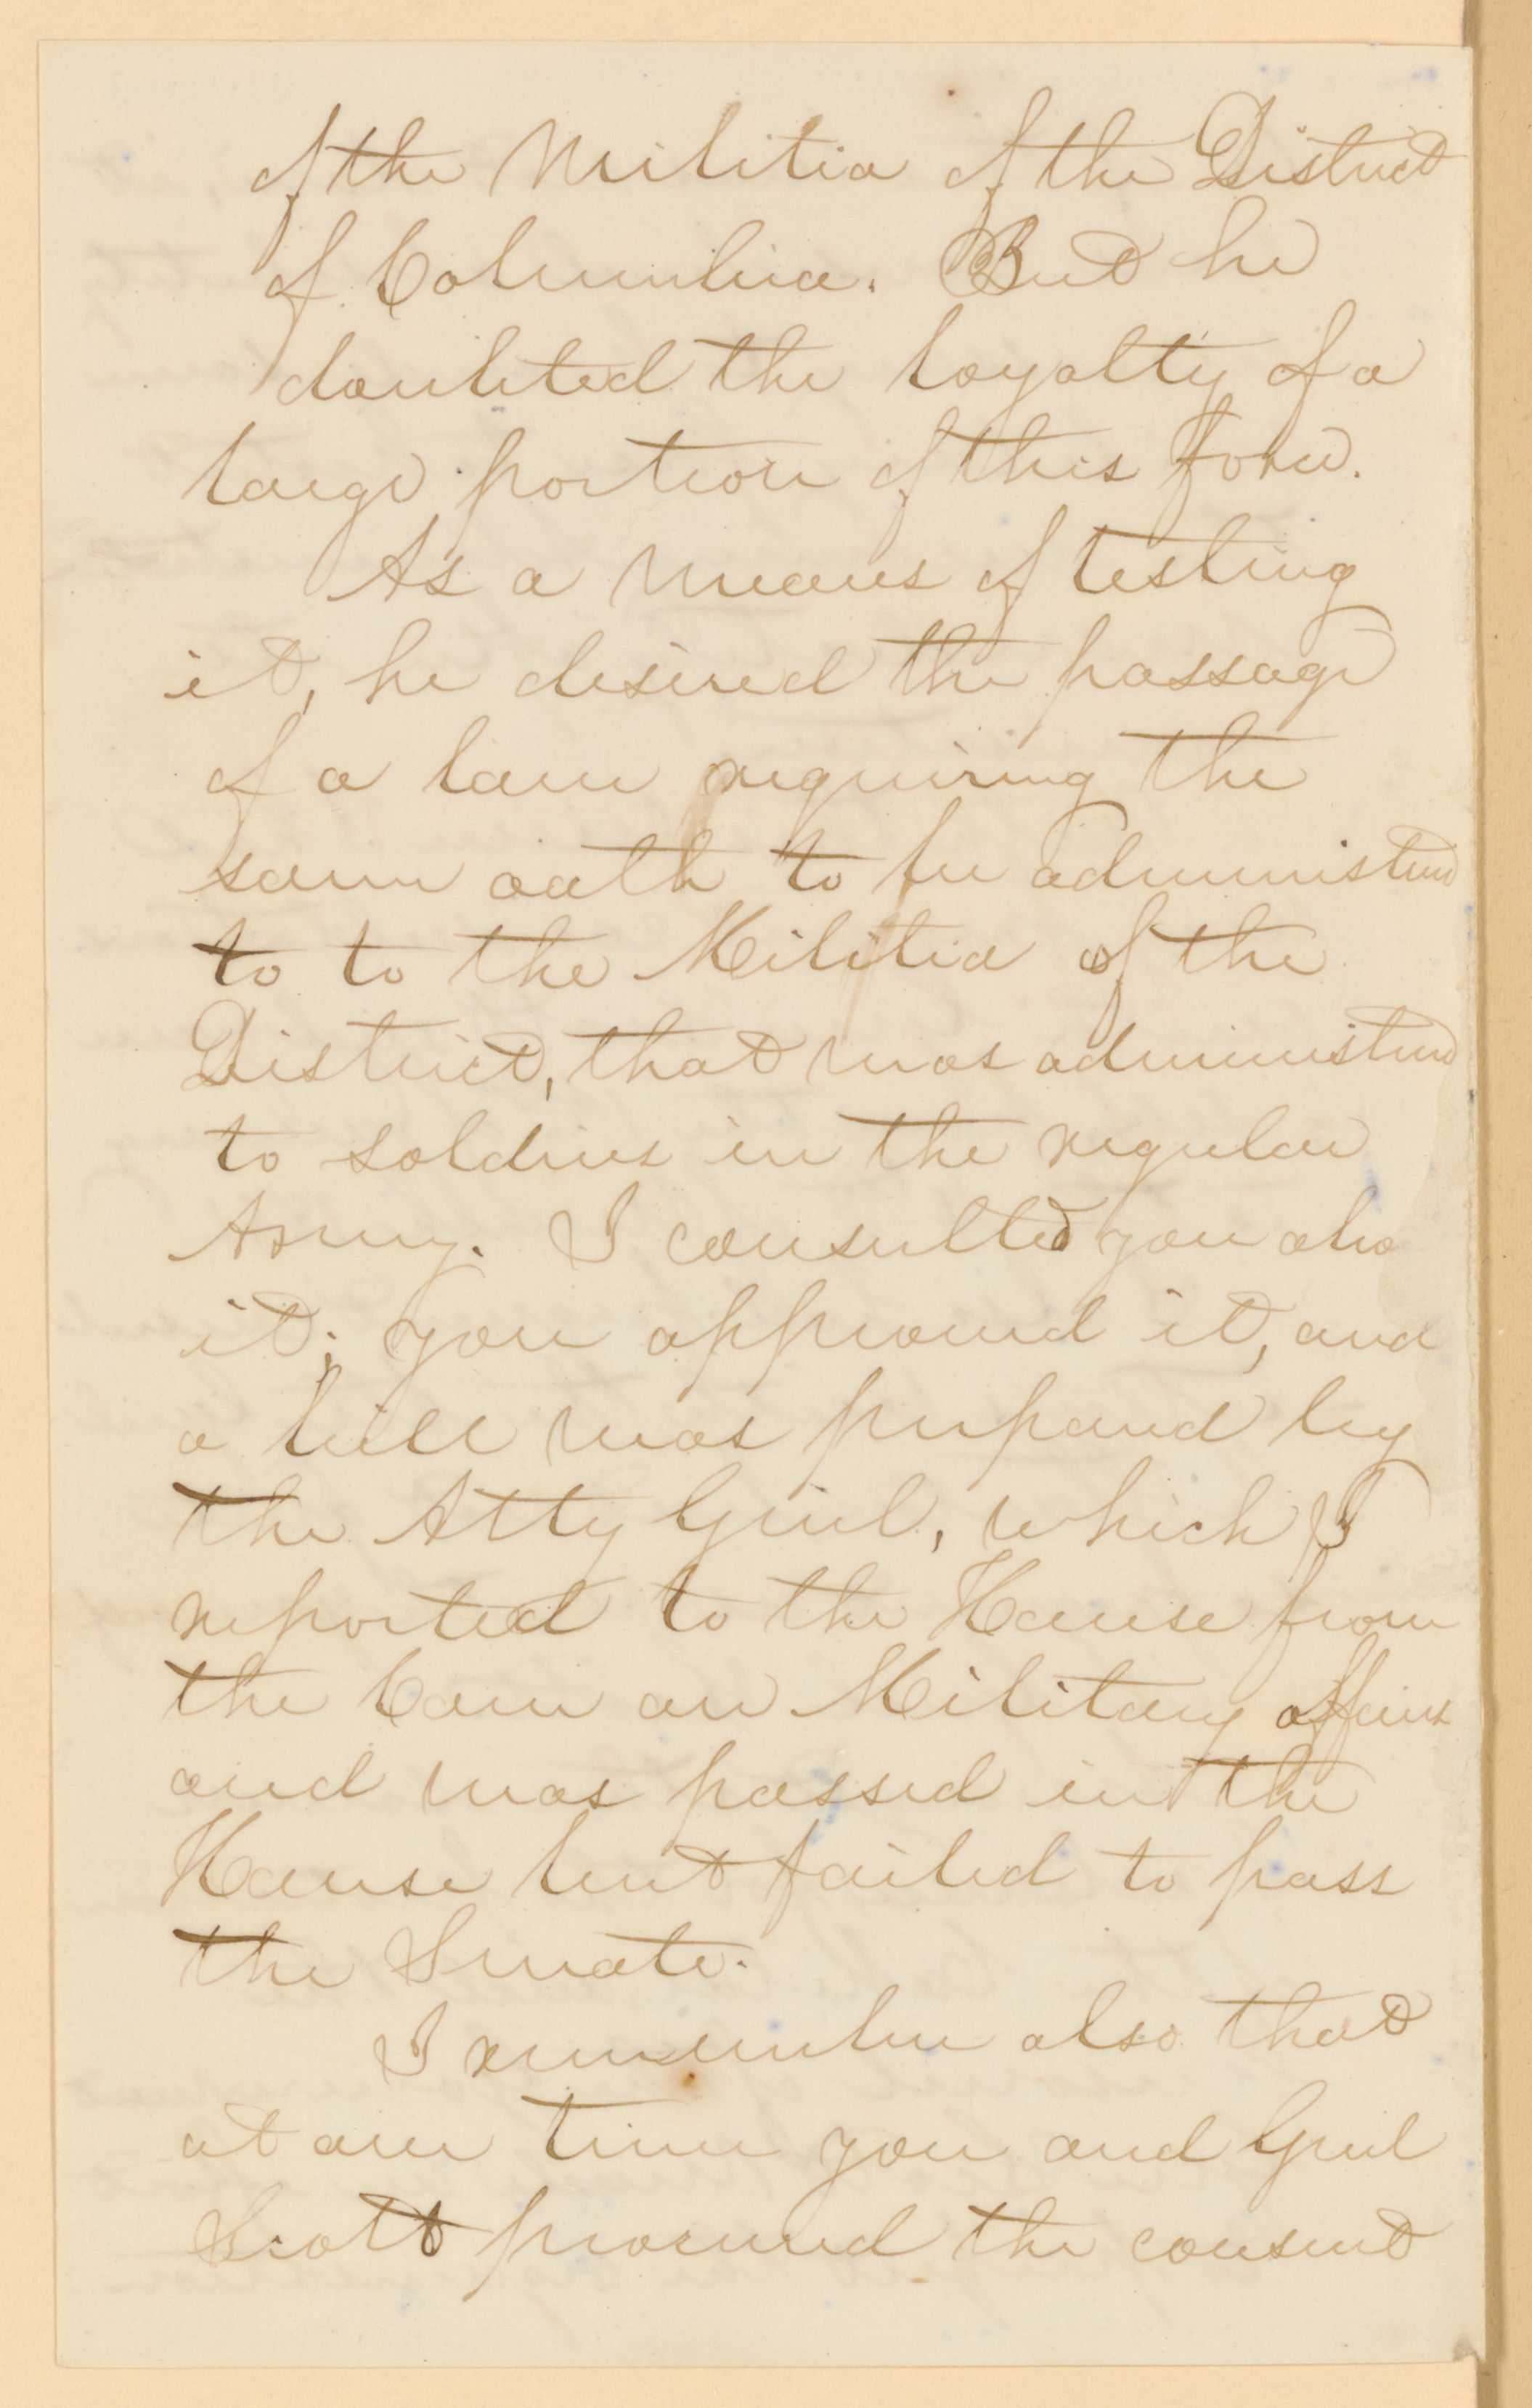 of the Militia of the District
of Columbia. But he
doubted the loyalty of a
large portion of this force.
As a means of testing
it, he desired the passage
of a law requiring the
same oath to be administered
to to the Militia of the
District, that was administered
to soldiers in the regular
Army. I consulted you also
it; you approved it, and
a bill was prepared by
the Atty Genl, which I
reported to the House from
the Com on Military affairs
and was passed in the
House but failed to pass
the Senate.
I remember also that
at one time you and Genl
Scott procured the consent